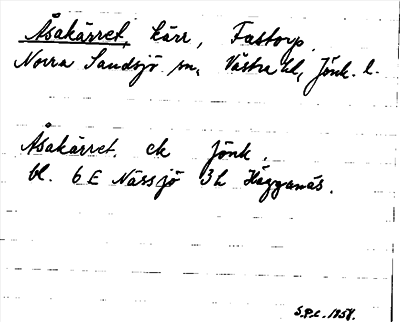 Åsakärret, kärr, Fastorp.
Norra Sandsjö sn, Västra hd, Jönk. l.
Åsakärret. ek Jönk.
bl. 6 E Nässjö 3h Hägganäs.
S.P.C. 1958.